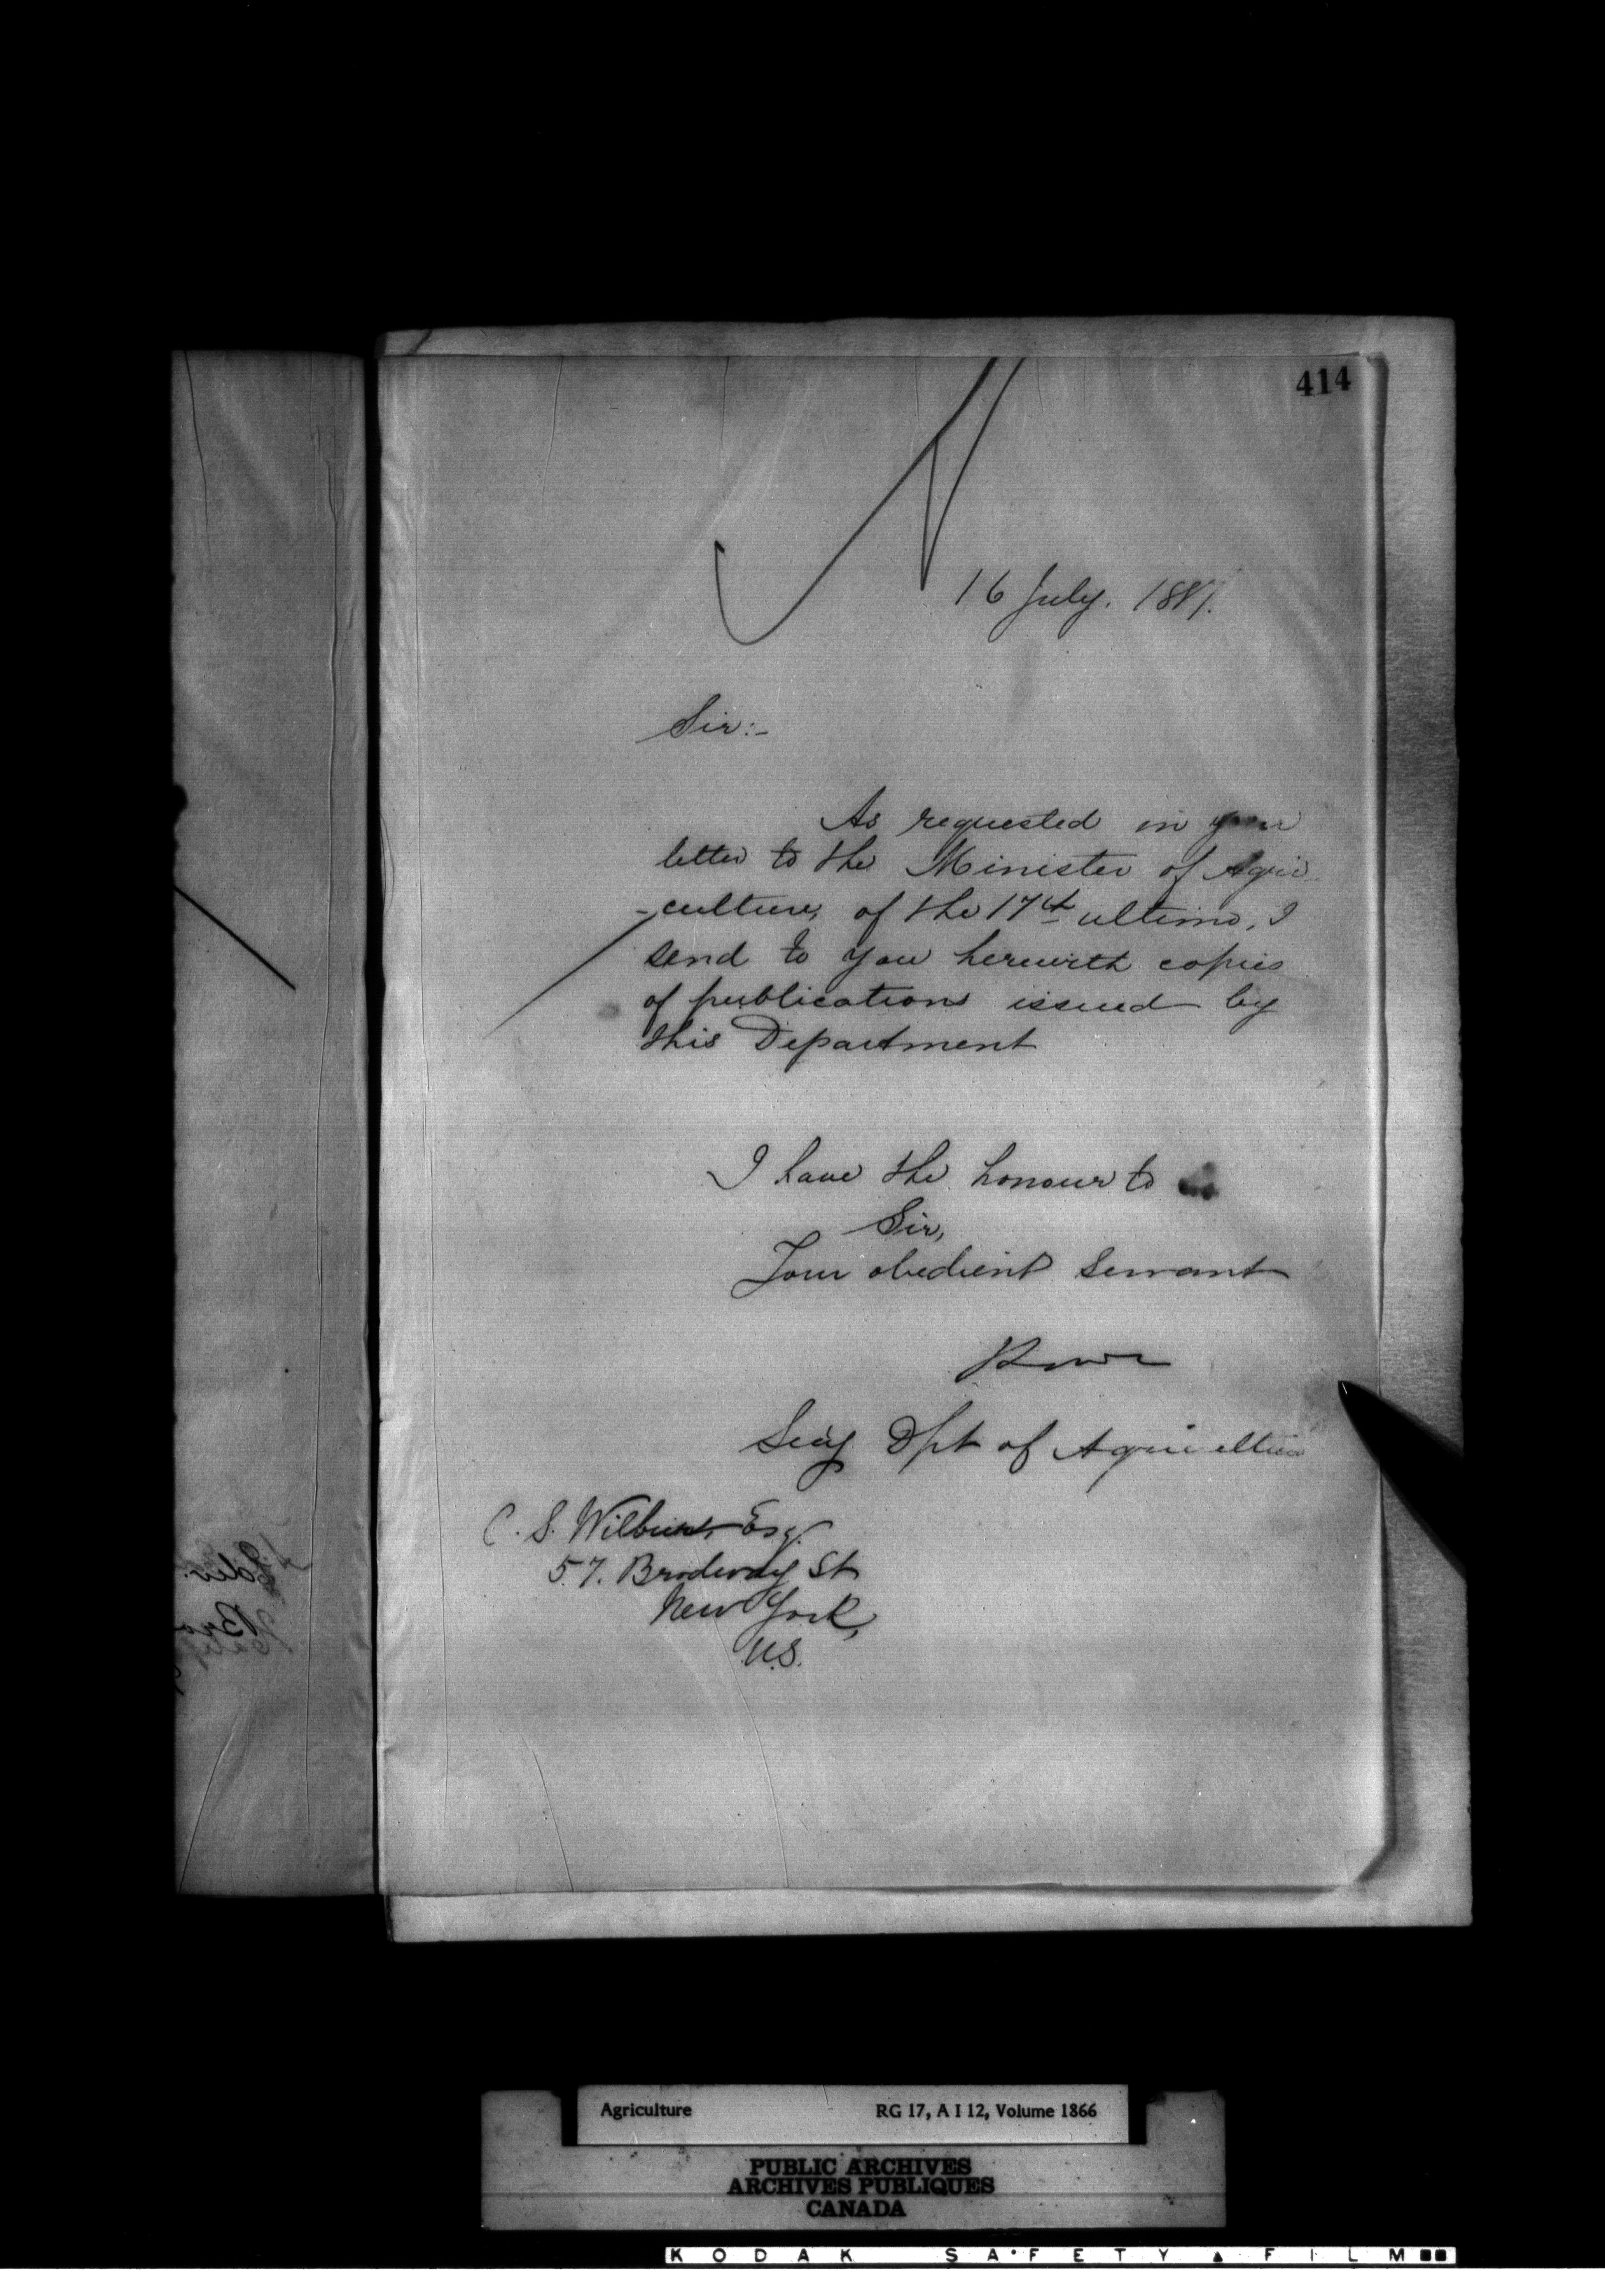 414
16 July. 1881.
Sir:-
As requested in your
letter to the Minister of Agri
-culture, of the 17th ultimo, I
send to you herewith copies
of publications issued by
this Department
I have the honour to be
Sir,
Your obedient Servant
Secy Dpt of Agriculture
C. S. Wilburt Esq.
57. Brodway St
New York,
U.S.
Agriculture RG 17, A I 12, Volume 1866
PUBLIC ARCHIVES
ARCHIVES PUBLIQUES
CANADA
KODAK SAFETY FILM